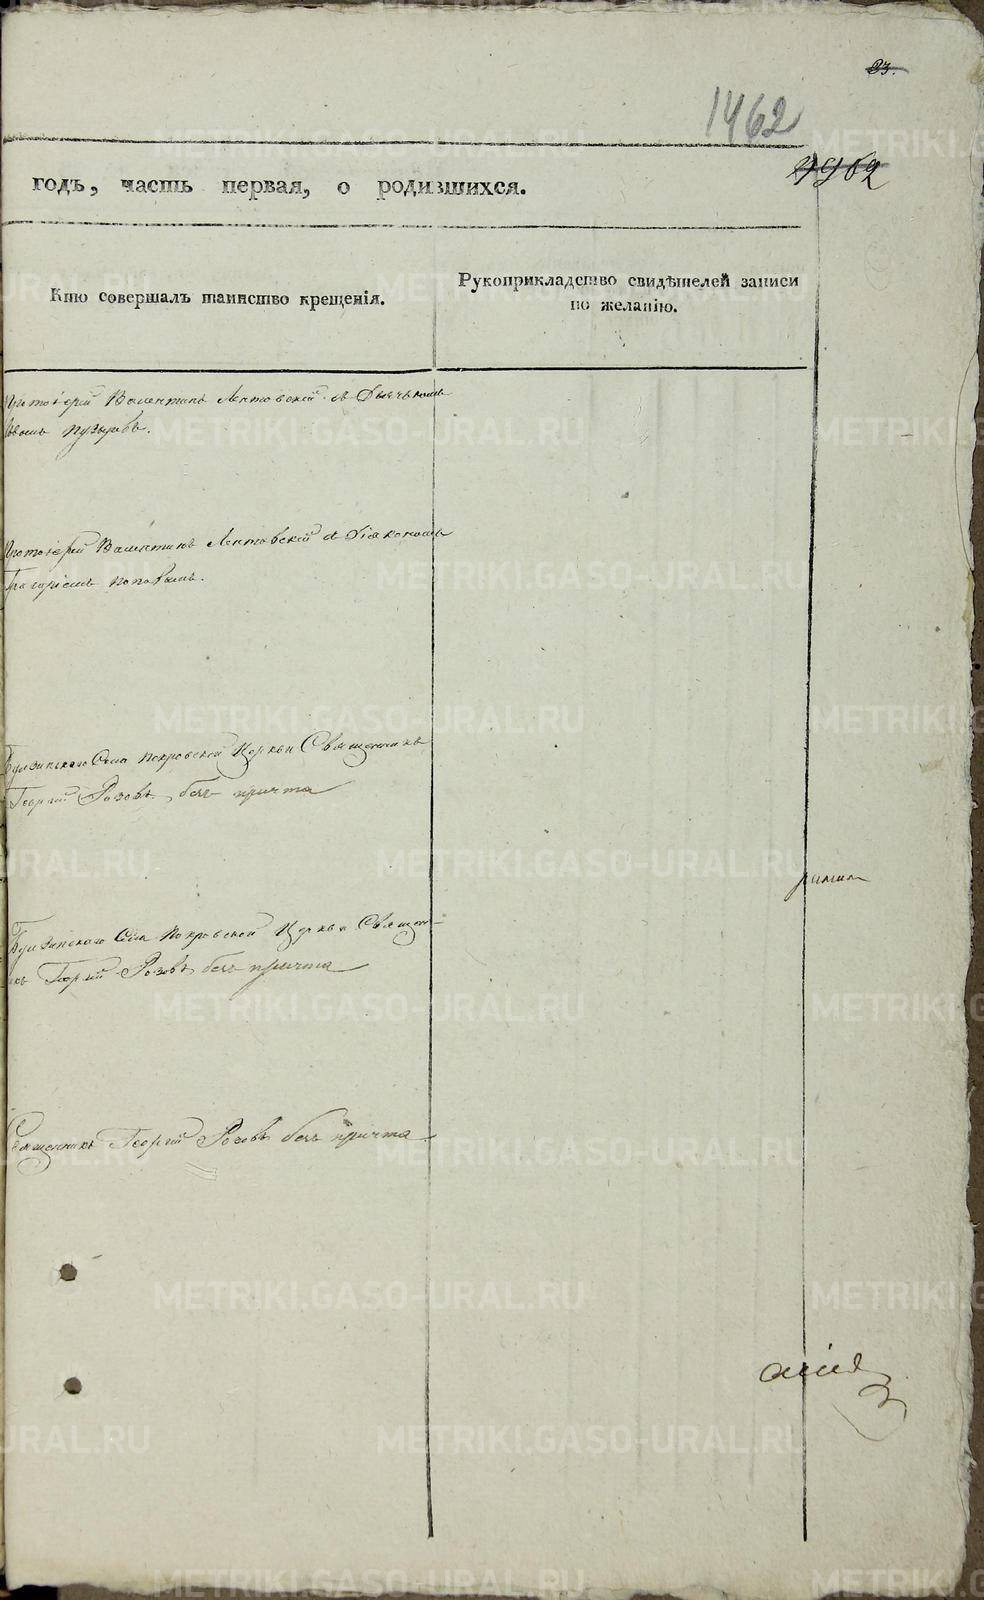 23.
1462
годъ, часть первая, о родившихся.
Кто совершалъ таинство крещенія.
Рукоприкладство свидѣтелей записи
по желанію.
Протоіерей Валентинъ Лентовскій съ Дьячькомъ
Пузыревъ.
Протоіерей Валентинъ Лентовскій съ Діакономъ
Григоріемъ Поповымъ.
Булзинскаго Села Покровской Церкви Священникъ
Георгій Розовъ безъ причта
Булзинскаго Села Покровской Церкви Священ-
никъ Георгій Розовъ безъ причта
Священникъ Георгій Розовъ безъ причта
METRIKI.GASO-URAL.RU